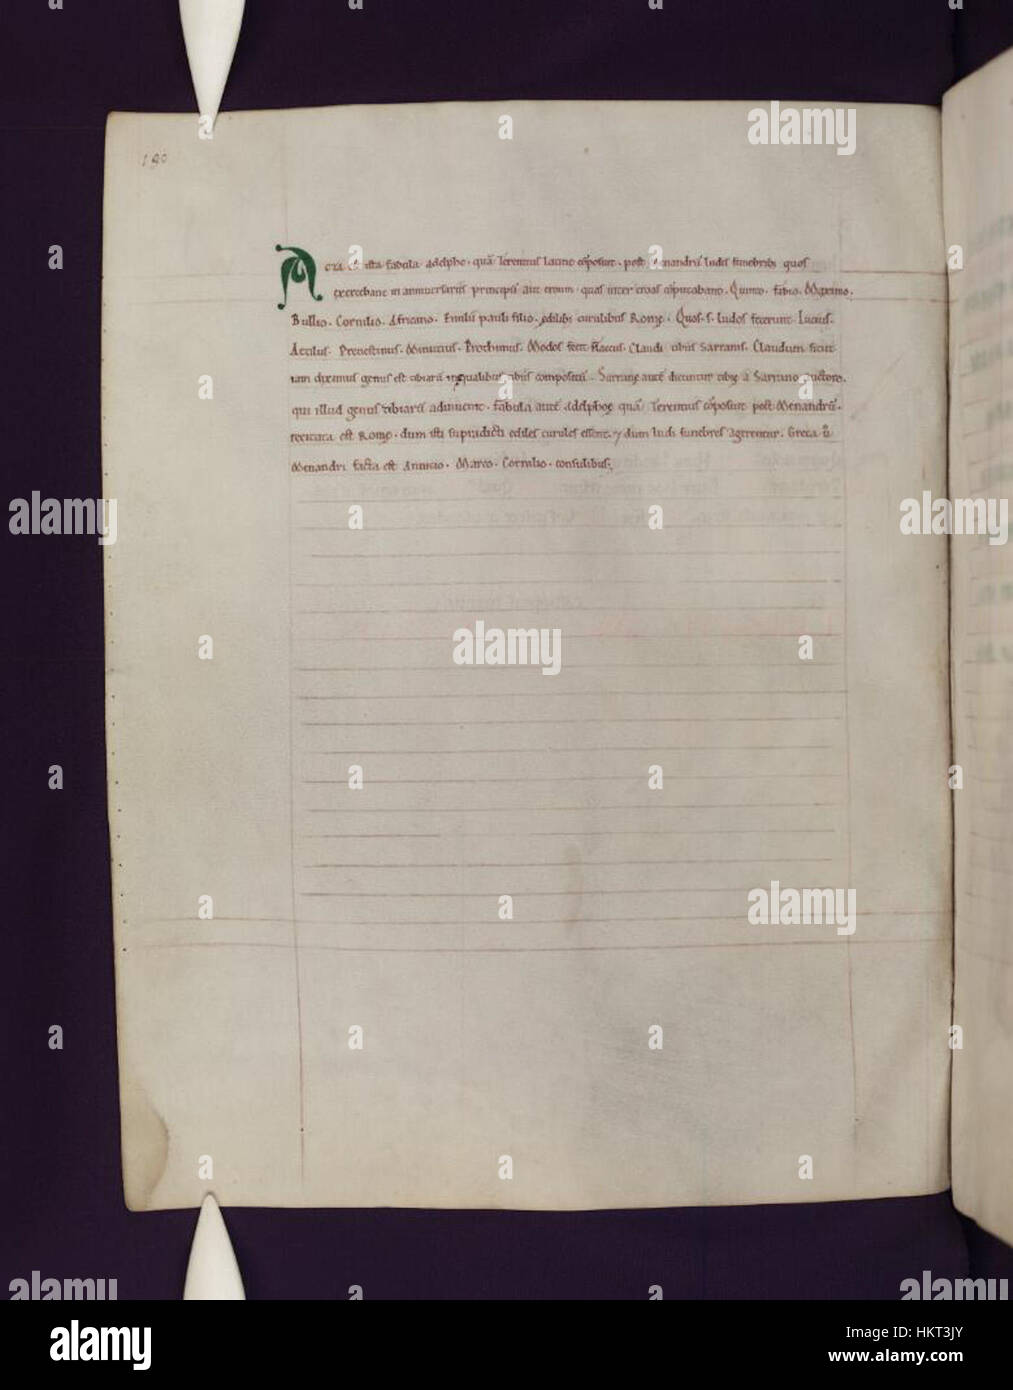 190
Acta est ista fabula adelphe · quã Terentius latine cõposuit · post Menandrũ ludis funebrib; quos
exercebant in anniversariis principis aut eroum · quos inter eroas cõputabant · Quinto · fabio · Maximo ·
Bullio · Cornilio · Africano · Emilii pauli filio · ędilib; curulibus Romę · Quos · s · ludos fecerunt · Lucius ·
Actilus · Prenestinus · Minutius · Prothimus · Modos fecit flaccus · Claudi tibiis Sarranis · Claudum sicut
iam diximus genus est tibiarũ inęqualibus tibiis compositũ · Sarranę autẽ dicuntur tibię a Sarrano auctore ·
qui illud genus tibiarũ adinvenit · fabula autẽ Adelphoe quã Terentius cõposuit post Menandrũ ·
recitata est Romę · dum isti supradicti ediles curules essent · ⁊ dum ludi funebres agerentur · Greca ũ
Menandri facta est Annicio · Marco · Cornilio · consulibus ;
alamy stock photo
alamy stock photo
alamy
alamy
alamy stock photo
HKT3JY
www.alamy.com